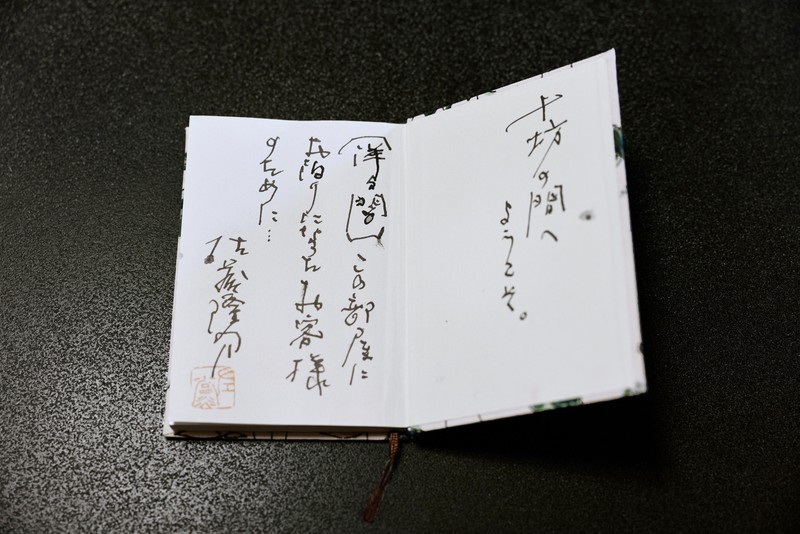 十坊の間へ
ようこそ。
「洋々閣」この部屋に
お泊りになったお客様
のために…
佐藤隆介